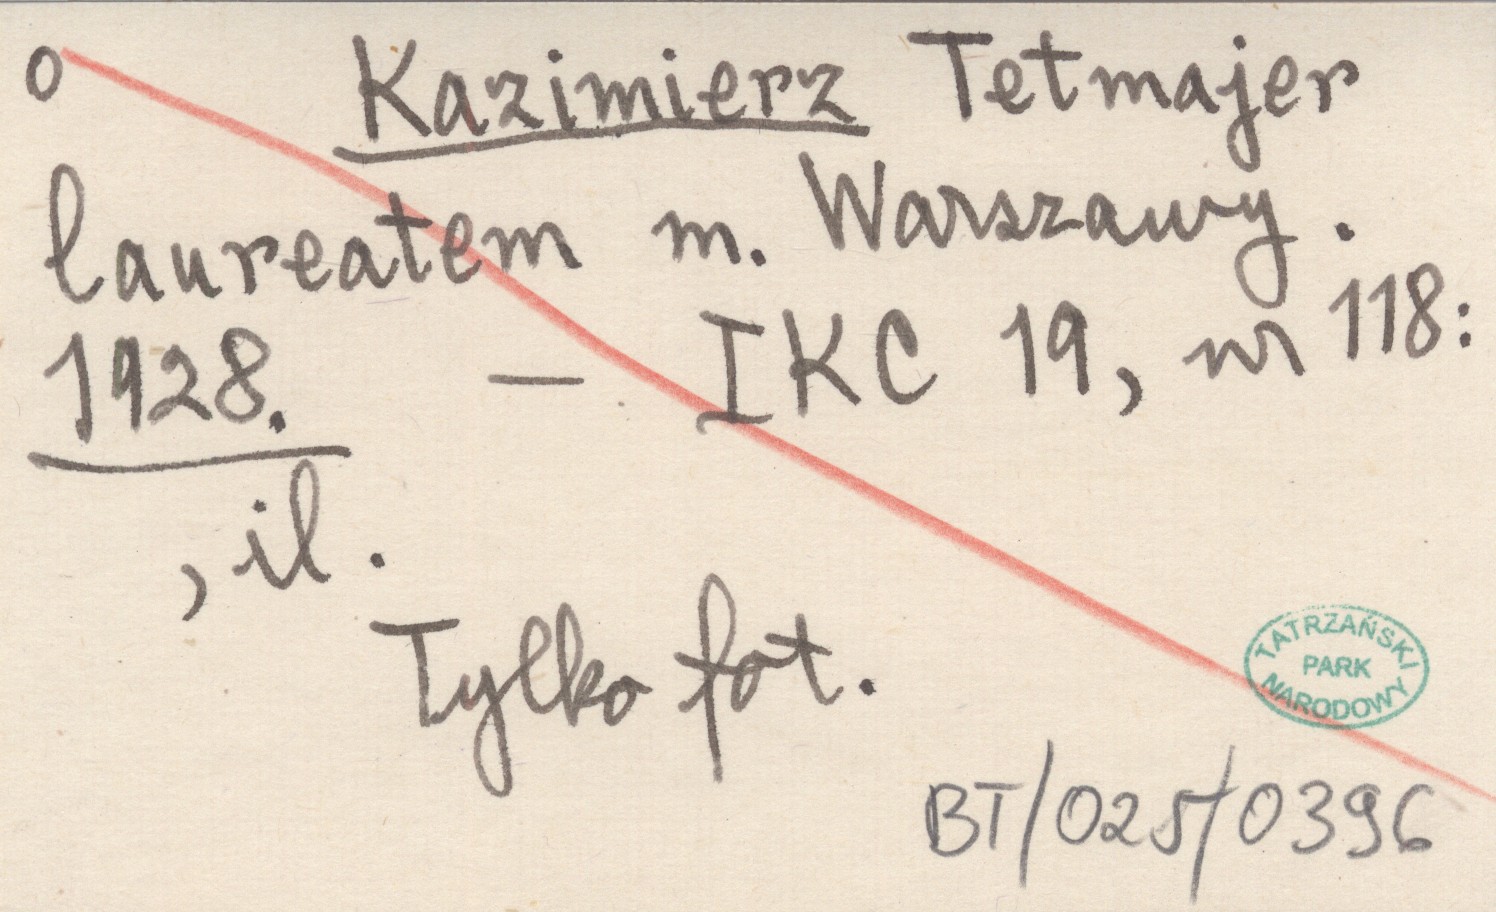 o Kazimierz Tetmajer
laureatem m. Warszawy.
1928. — IKC 19, nr 118:
, il.
Tylko fot.
TATRZAŃSKI
PARK
NARODOWY
BT/025/0396